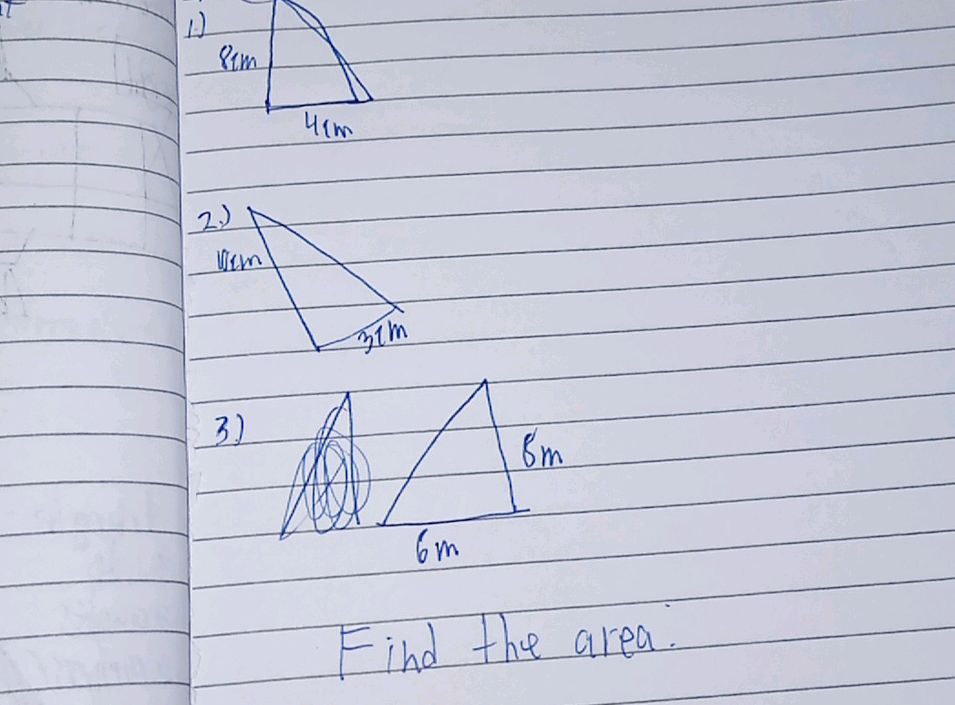 1.)
8cm
4cm
2.)
3cm
3)
8m
6m
Find the area.